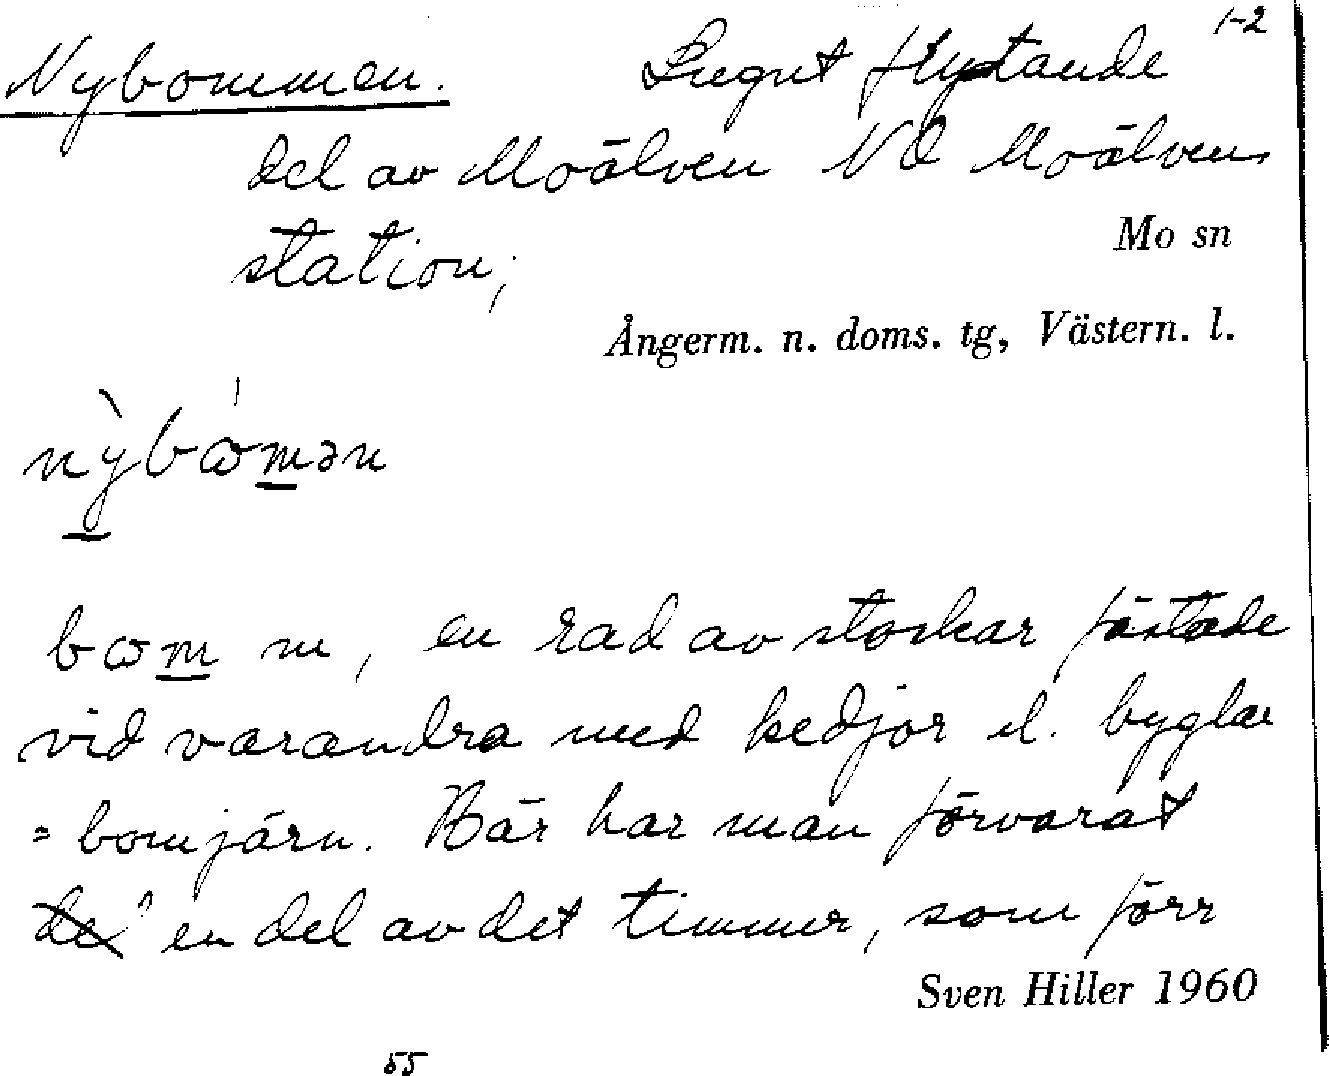 1-2
Nybommen. Lugnt flytande
del av Moälven NO Moälvens
station;
Mo sn
Ångerm. n. doms. tg, Västern. l.
nỳbɷ́mən
bɷm m, en rad av stockar fästade
vid varandra med kedjor el. byglar
= bomjärn. Här har man förvarat
de en del av det timmer, som förr
Sven Hiller 1960
55